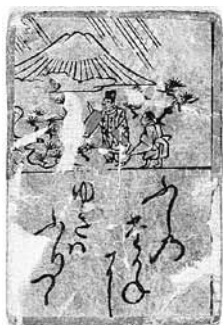 ふしの
たかね
に
ゆきは
ふりつゝ